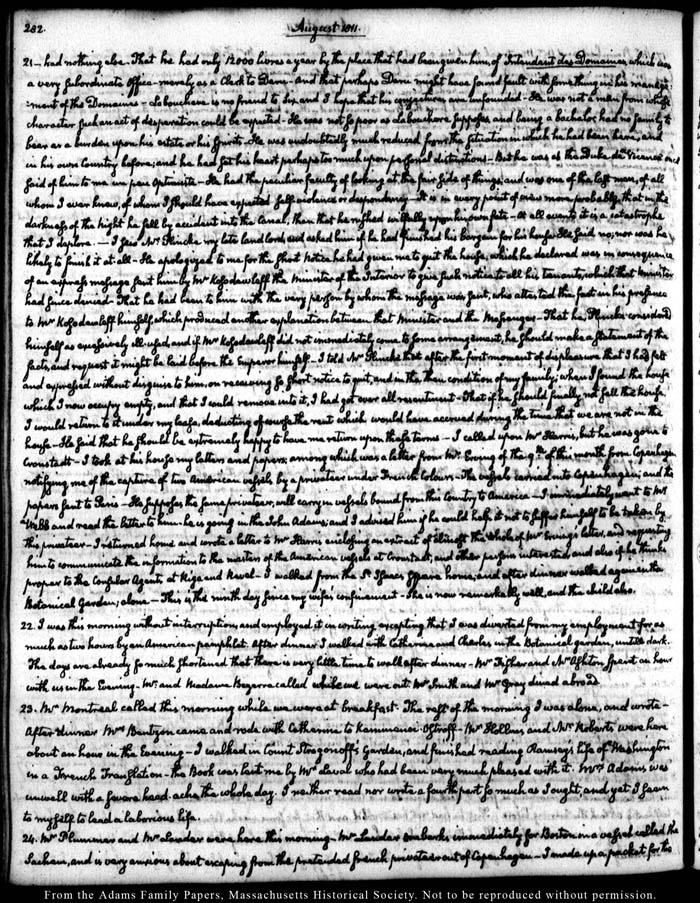 282.
August 1811.
21 — had nothing else. That he had only 12000 livres a year by the place that had been given him, of Intendant des Domaines, which was
a very subordinate Office — merely as a Clerk to Daru — and that perhaps Daru might have found fault with something in his manage-
:ment of the Domaines — Labouchere is no friend to Six, and I hope that his conjectures are unfounded — He was not a man from whose
character such an act of desperation could be expected — He was not so poor as Labouchere supposes, and being a bachelor had no family to
bear as a burden upon his estate or his spirits. He was undoubtedly much reduced from the situation in which he had been here, and
in his own Country before; and he had set his heart perhaps too much upon personal distinctions — But he was as the Duke de Vicence once
said of him to me un peu Optimiste — He had the peculiar faculty of looking at the fair side of things; and was one of the last men, of all
whom I ever knew, of whom I should have expected self-violence or despondency — It is in every point of view more probable, that in the
darkness of the Night he fell by accident into the Canal, than that he rushed wilfully upon his own fate — At all events it is a catastrophe
that I deplore. — I saw Mr. Plincke my late landlord and asked him if he had finished his bargain for his house. He said no; nor was he
likely to finish it at all — He apologized to me for the short Notice he had given me to quit the house, which he declared was in consequence
of an express message sent him by Mr Kosodawleff the Minister of the Interior to give such notice to all his tenants, which that Minister
had since denied — That he had been to him with the very person by whom the message was sent, who attested the fact in his presence
to Mr Kosodawleff himself, which produced another explanation between that Minister and the Messenger — That he, Plincke considered
himself as excessively ill-used, and if Mr Kosodawleff did not immediately come to some arrangement, he should make a statement of the
facts, and request it might be laid before the Emperor himself — I told Mr Plincke that after the first moment of displeasure that I had felt
and expressed without disguise to him, on receiving so short notice to quit, and in the then condition of my family; when I found the house
which I now occupy empty, and that I could remove into it, I had got over all resentment — That if he should finally not sell the house,
I would return to it under my lease, deducting of course the rent which would have accrued during the time that we are not in the
house — He said that he should be extremely happy to have me return upon those terms — I called upon Mr Harris, but he was gone to
Cronstadt — I took at his house my letters and papers; among which was a letter from Mr. Erving of the 9th of this month from Copenhagen
notifying me of the capture of two American vessels by a privateer under French Colours — The vessels carried into Copenhagen; and the
papers sent to Paris — He supposes the same privateer, will carry in vessels bound from this Country to America — I immediately went to Mr
Webb and read the letter to him — he is going in the John Adams; and I advised him if he could help it not to suffer himself to be taken by
this privateer — I returned home and wrote a letter to Mr Harris enclosing an extract of almost the whole of Mr Erving's letter, and requesting
him to communicate the information to the masters of the American vessels at Cronstadt, and other persons interested; and also if he thinks
proper to the Consular Agents at Riga and Reval — I walked from the St Isaac's Square home, and after dinner walked again in the
Botanical Garden; alone — This is the ninth day since my wife's confinement — She is now remarkably well, and the child also.
22. I was this morning without interruption, and employed it in writing excepting that I was diverted from my employment for as
much as two hours by an American pamphlet. After dinner I walked with Catherine and Charles in the Botanical garden, untill dark.
The days are already so much shortened that there is very little time to walk after dinner — Mr Fisher and Mr Ashton spent an hour
with us in the Evening — Mr: and Madame Bezerra called while we were out. Mr Smith and Mr Gray dined abroad.
23. Mr Montreal called this morning while we were at breakfast. The rest of the morning I was alone, and wrote —
After dinner Mrs Bentzon came and rode with Catherine to Kammenoi-Ostroff — Mr Hollins and Mr Roberts were here
about an hour in the Evening — I walked in Count Strogonoff's Garden, and finished reading Ramsay's life of Washington
in a French Translation — the Book was lent me by Mr Laval who had been very much pleased with it. Mrs Adams was
unwell with a severe head-ache the whole day. I neither read nor wrote a fourth part so much as I ought, and yet I seem
to myself to lead a laborious life.
24. Mr Plummer and Mr Lander were here this morning — Mr Lander embarks immediately for Boston in a vessel called the
Sachem, and is very anxious about escaping from the pretended french privateer out of Copenhagen — I made up a packet for the
From the Adams Family Papers, Massachusetts Historical Society. Not to be reproduced without permission.